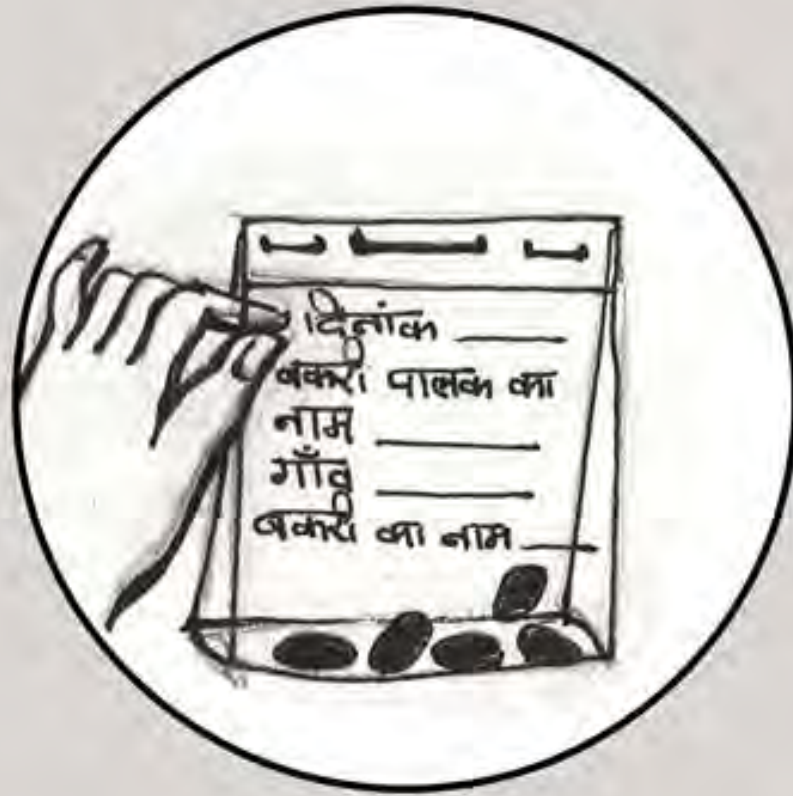 दिनांक ____
बकरी पालक का
नाम ____
गाँव ____
बकरी का नाम ____